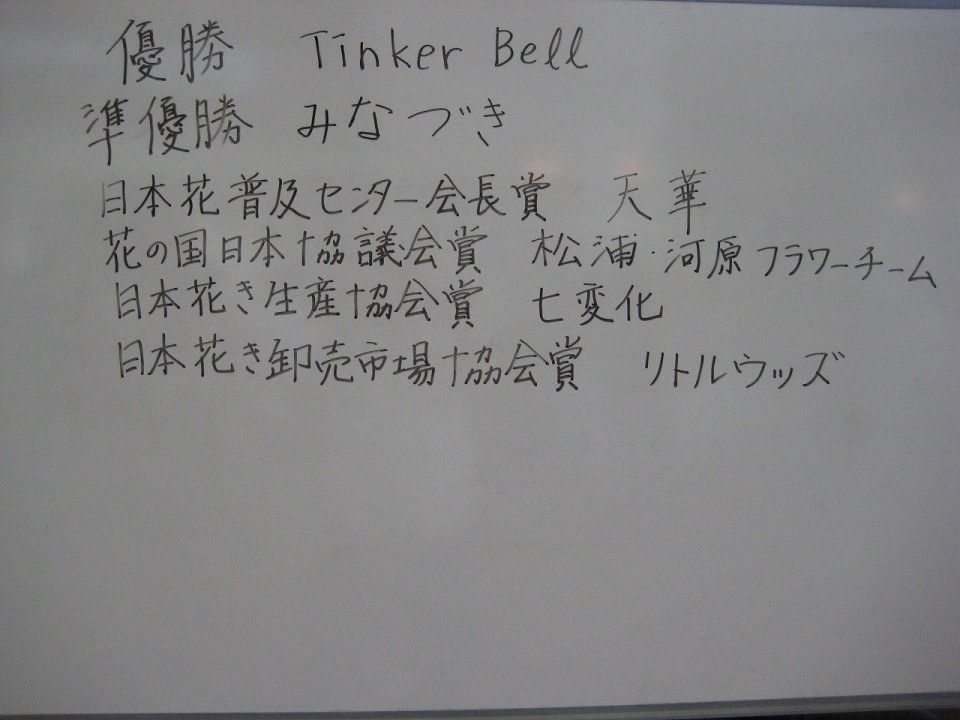 優勝 Tinker Bell
準優勝 みなづき
日本花普及センター会長賞 天華
花の国日本協議会賞 松浦・河原フラワーチーム
日本花き生産協会賞 七変化
日本花き卸売市場協会賞 リトルウッズ